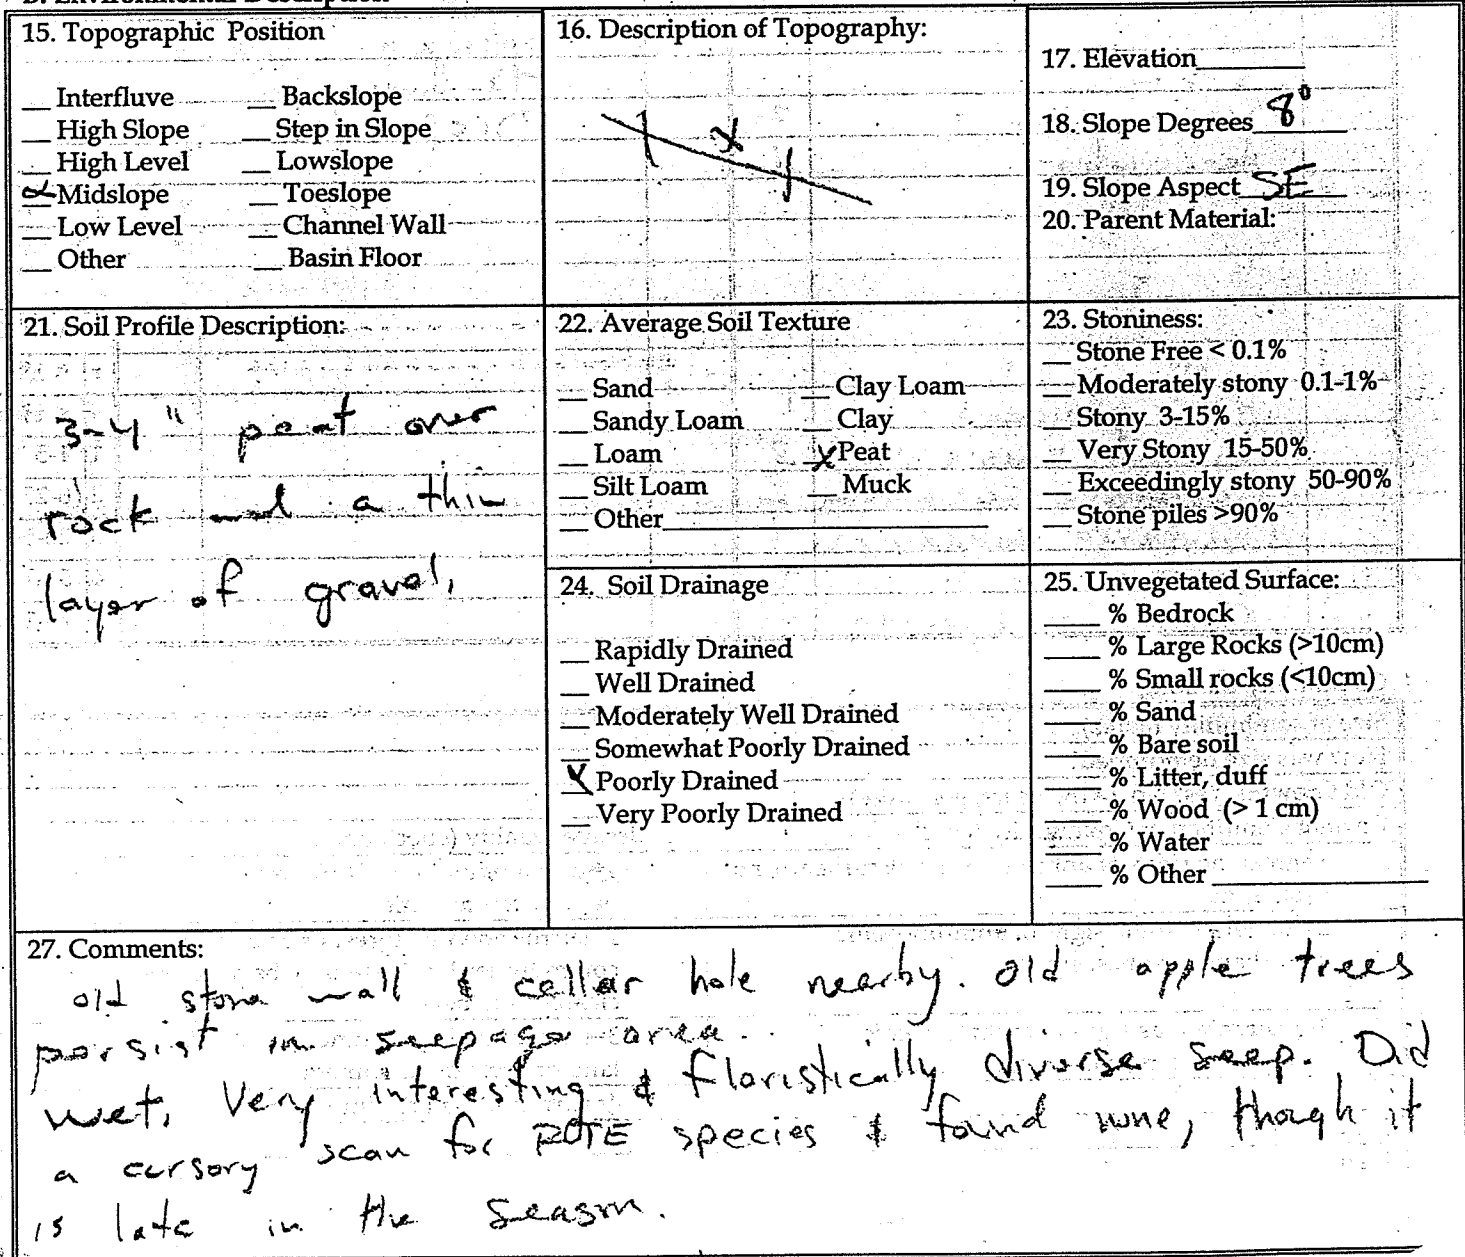 15. Topographic Position
__ Interfluve __ Backslope
__ High Slope __ Step in Slope
__ High Level __ Lowslope
x Midslope __ Toeslope
__ Low Level __ Channel Wall
__ Other __ Basin Floor
16. Description of Topography:
x
17. Elevation________
18. Slope Degrees 8°
19. Slope Aspect SE
20. Parent Material:
21. Soil Profile Description:
3-4" peat over
rock and a thin
layer of gravel,
22. Average Soil Texture
__ Sand __ Clay Loam
__ Sandy Loam __ Clay
__ Loam x Peat
__ Silt Loam __ Muck
__ Other________
23. Stoniness:
__ Stone Free < 0.1%
__ Moderately stony 0.1-1%
__ Stony 3-15%
__ Very Stony 15-50%
__ Exceedingly stony 50-90%
__ Stone piles >90%
24. Soil Drainage
__ Rapidly Drained
__ Well Drained
__ Moderately Well Drained
__ Somewhat Poorly Drained
X Poorly Drained
__ Very Poorly Drained
25. Unvegetated Surface:
____ % Bedrock
____ % Large Rocks (>10cm)
____ % Small rocks (<10cm)
____ % Sand
____ % Bare soil
____ % Litter, duff
____ % Wood (> 1 cm)
____ % Water
____ % Other ________
27. Comments:
old stone wall & cellar hole nearby. Old apple trees
persist in seepage area.
wet, Very interesting & floristically diverse seep. Did
a cursory scan for R&TE species & found none, though it
is late in the season.